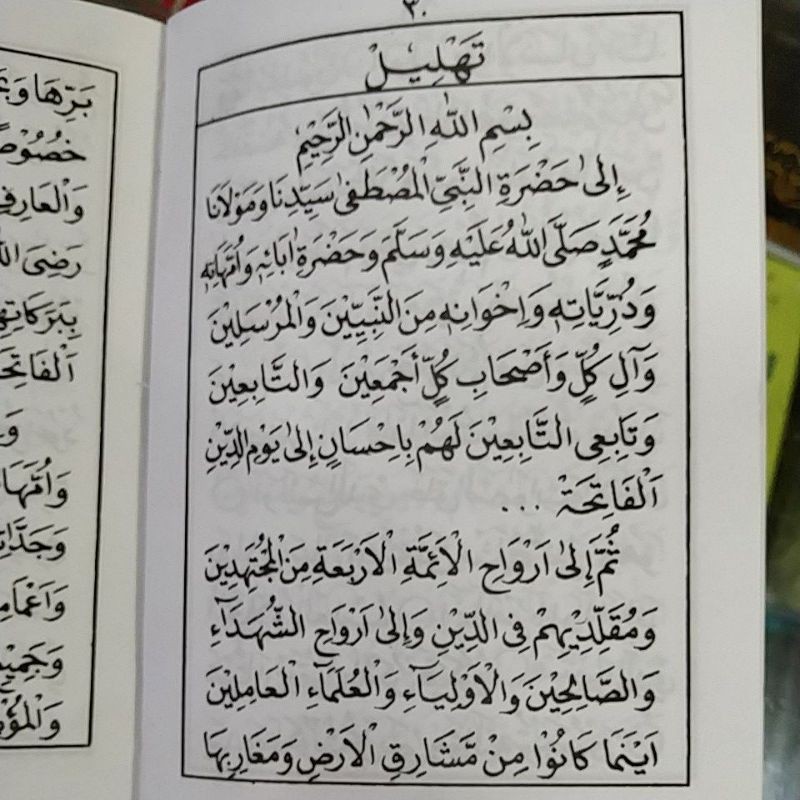 ٣٠
تَهْلِيْلْ
بِسْمِ اللّٰهِ الرَّحْمٰنِ الرَّحِيْمِ
اِلىٰ حَضْرَةِ النَّبِيِّ الْمُصْطَفىٰ سَيِّدِنَا وَمَوْلَانَا
مُحَمَّدٍ صَلَّى اللّٰهُ عَلَيْهِ وَسَلَّمَ وَحَضْرَةِ اٰبَائِهٖ وَاُمَّهَاتِهٖ
وَذُرِّيَّاتِهٖ وَاِخْوَانِهٖ مِنَ النَّبِيِّيْنَ وَالْمُرْسَلِيْنَ
وَآلِ كُلٍّ وَأَصْحَابِ كُلٍّ أَجْمَعِيْنَ وَالتَّابِعِيْنَ
وَتَابِعِى التَّابِعِيْنَ لَهُمْ بِاِحْسَانٍ اِلىٰ يَوْمِ الدِّيْنِ
اَلْفَاتِحَةْ ...
ثُمَّ اِلىٰ اَرْوَاحِ الْاَئِمَّةِ الْاَرْبَعَةِ مِنَ الْمُجْتَهِدِيْنَ
وَمُقَلِّدِيْهِمْ فِى الدِّيْنِ وَاِلىٰ اَرْوَاحِ الشُّهَدَآءِ
وَالصَّالِحِيْنَ وَالْاَوْلِيَآءِ وَالْعُلَمَآءِ الْعَامِلِيْنَ
اَيْنَمَا كَانُوْا مِنْ مَشَارِقِ الْاَرْضِ وَمَغَارِبِهَا
بَرِّهَا
رَضِىَ